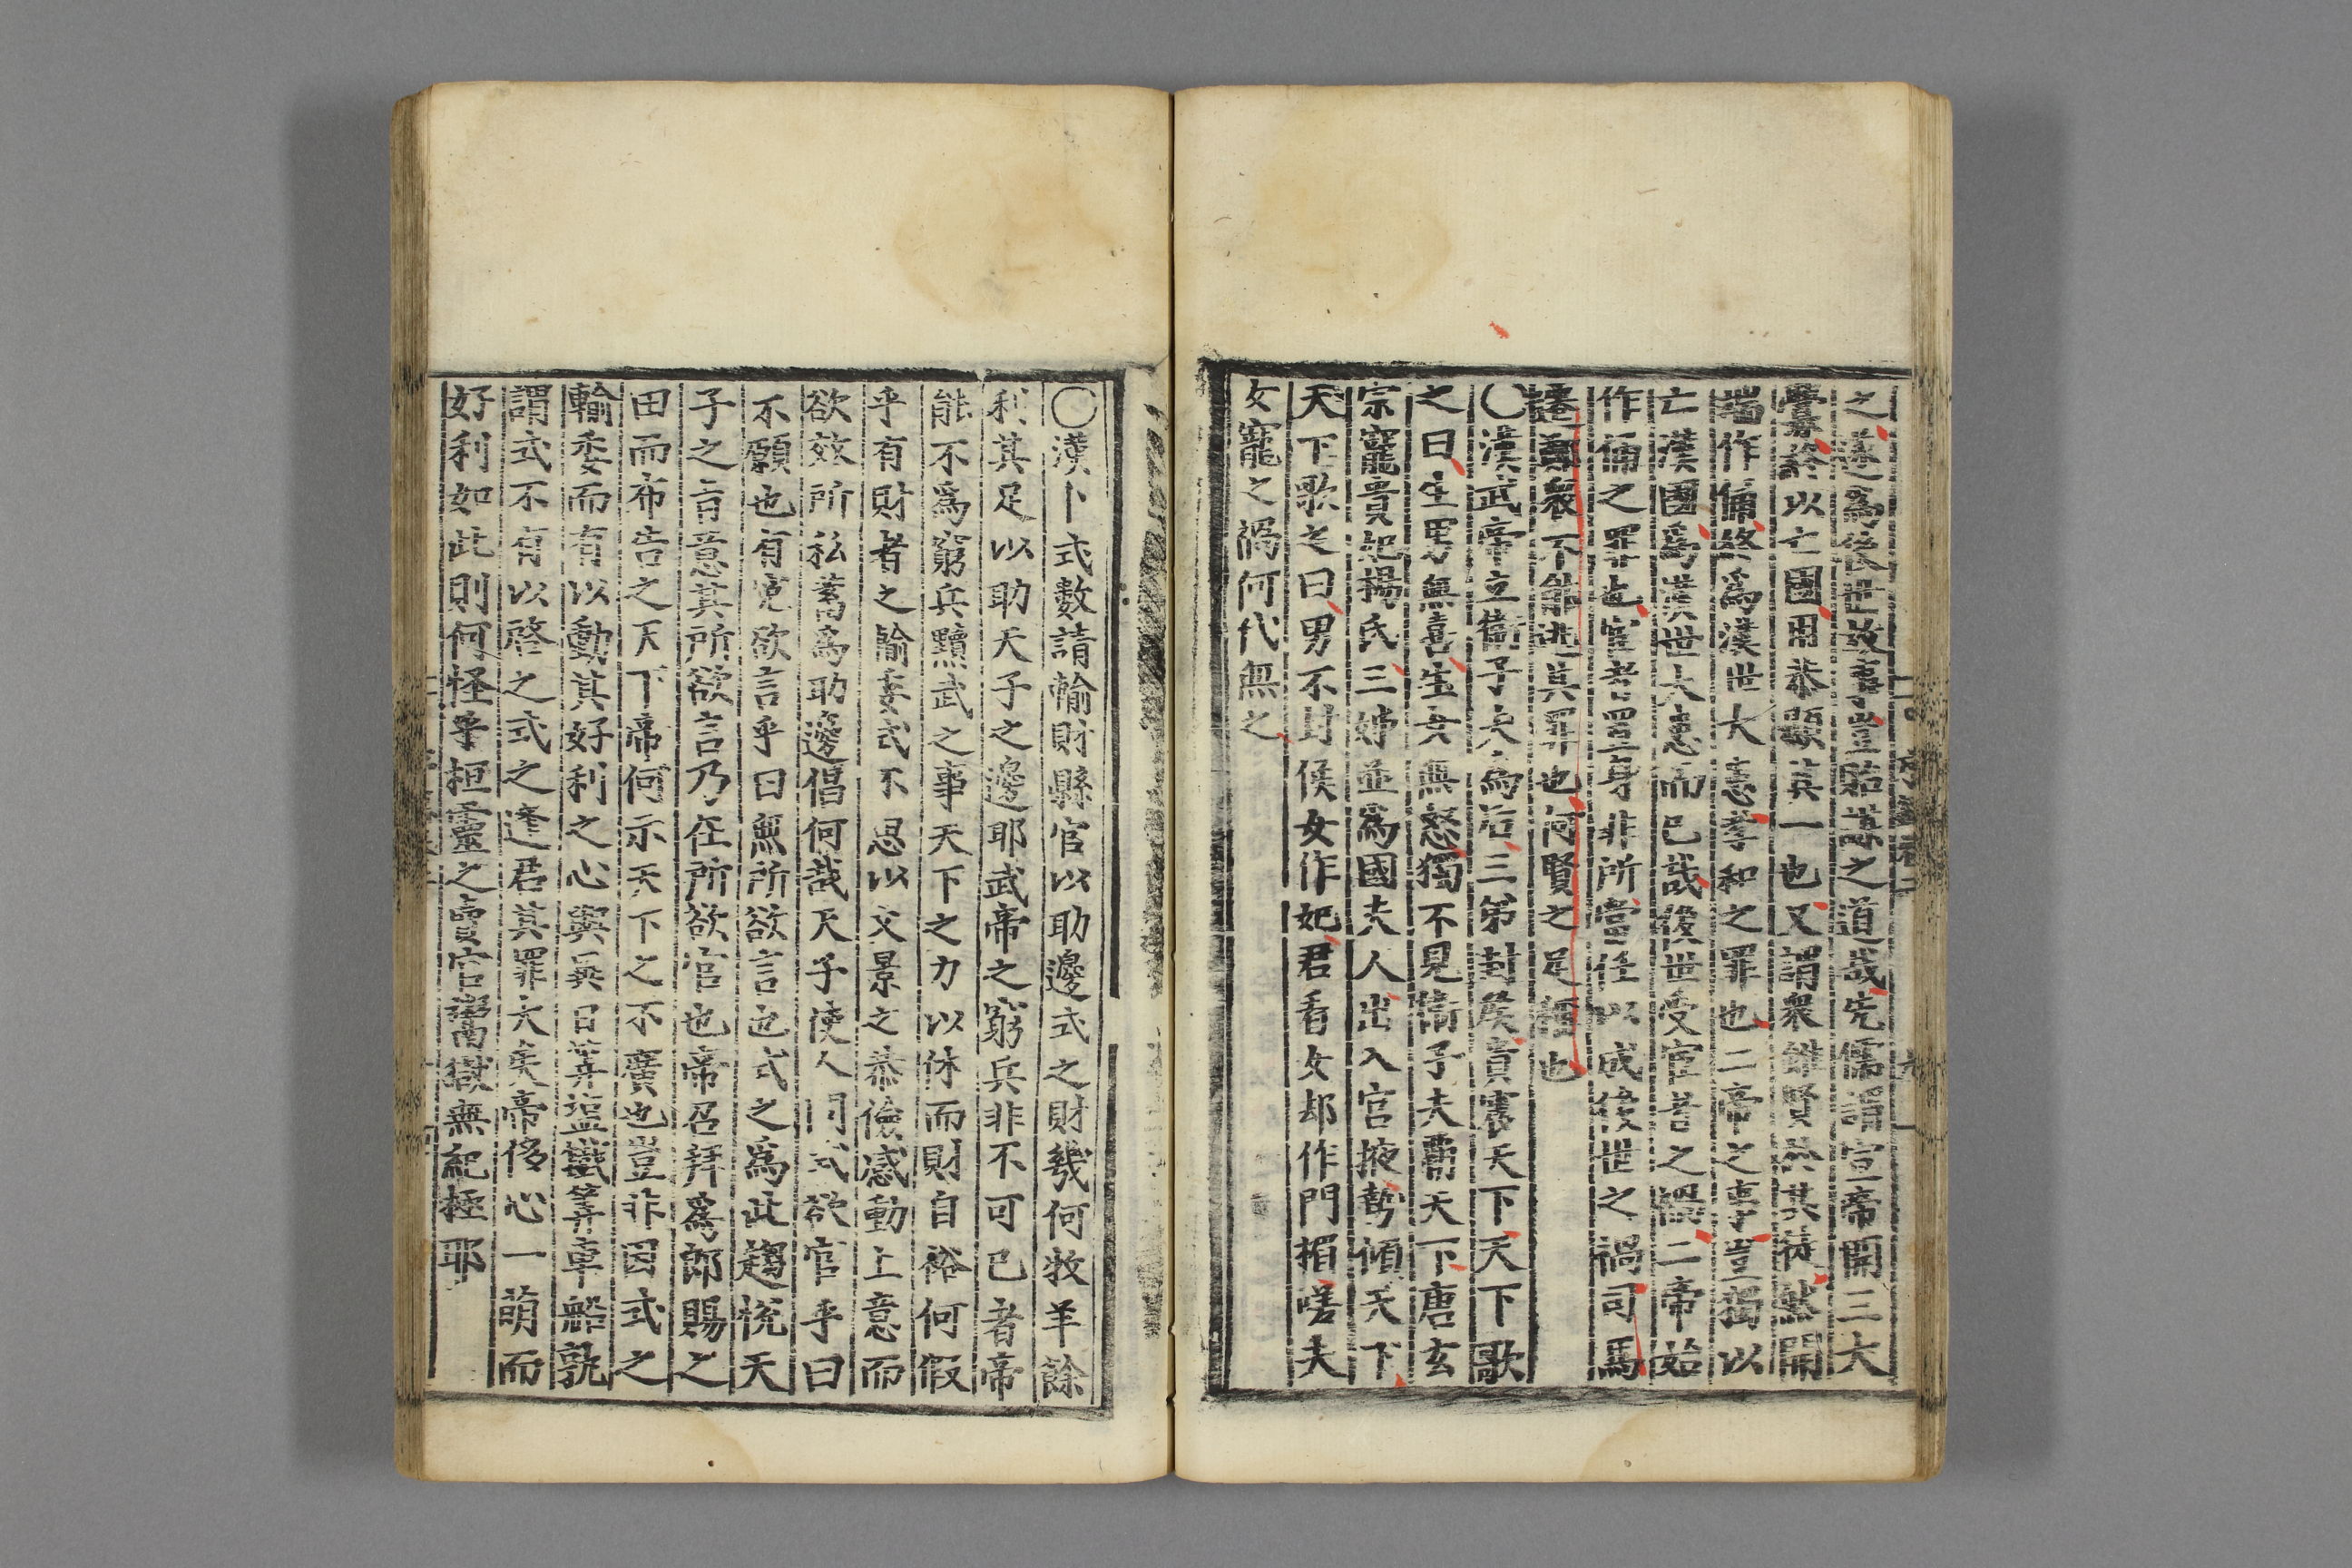 之遂爲後世故事豈貽謀之道哉先儒謂宣帝開三大
釁終以亡國用恭顯其一也又謂衆雖賢於其徒然開
端作俑終爲漢世大患孝和之罪也二帝之事豈獨以
亡漢國爲漢世大患而已哉後世受宦者之禍二帝始
作俑之罪也宦者置身非所當任以成後世之禍司馬
遷鄭衆不能逃其罪也何賢之足稱也
〇漢武帝立衛子夫爲后三弟封侯貴震天下天下歌
之曰生男無喜生女無怒獨不見衛子夫霸天下唐玄
宗寵貴妃楊氏三姊並爲國夫人出入宮掖勢傾天下
天下歌之曰男不封侯女作妃君看女却作門楣嗟夫
女寵之禍何代無之
〇漢卜式數請輸財縣官以助邊式之財幾何牧羊餘
利其足以助天子之邊耶武帝之窮兵非不可已者帝
能不爲窮兵黷武之事天下之力以休而財自裕何假
乎有財者之輸委式不思以文景之恭儉感動上意而
欲效所私蓄爲助邊倡何哉天子使人問式欲官乎曰
不願也有冤欲言乎曰無所欲言也式之爲此趨悅天
子之旨意其所欲言乃在所欲官也帝召拜爲郎賜之
田而布告之天下帝何示天下之不廣也豈非因式之
輸委而有以動其好利之心與異日筭塩鐵筭車船孰
謂式不有以啓之式之逢君其罪大矣帝侈心一萌而
好利如此則何怪乎桓靈之賣官鬻獄無紀極耶